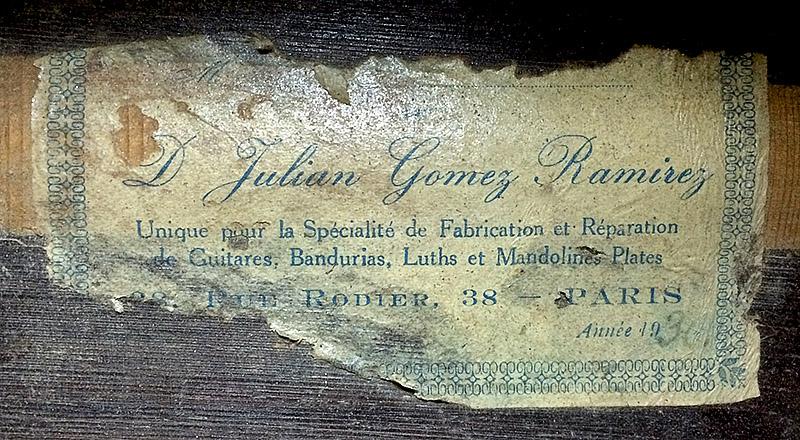 D Julian Gomez Ramirez
Unique pour la Spécialité de Fabrication et Réparation
de Guitares, Bandurias, Luths et Mandolines Plates
38, Rue Rodier, 38 — PARIS
Année 193